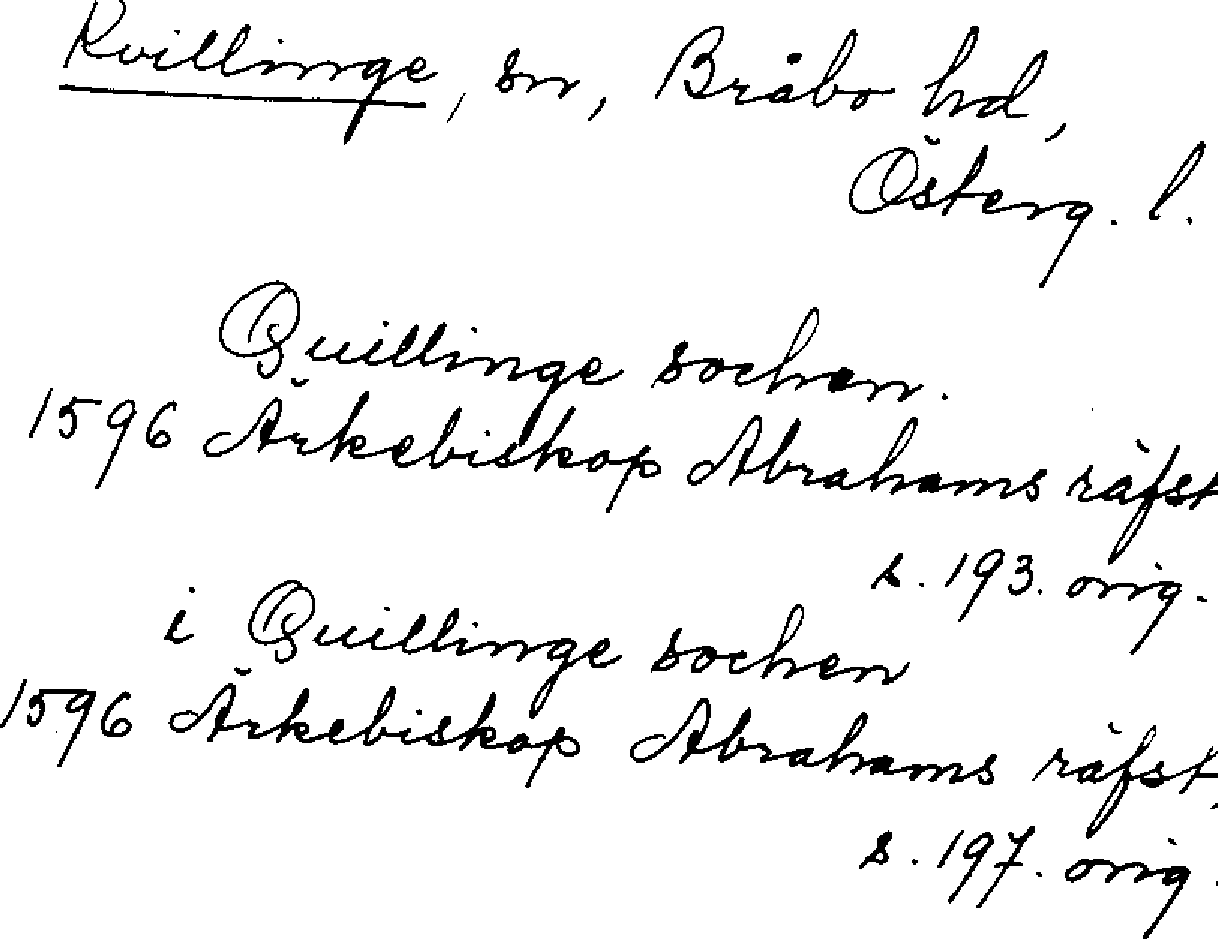 Kvillinge, sn, Bråbo hd,
Österg. l.
Quillinge sochen.
1596 Ärkebiskop Abrahams räfst
s. 193. orig.
i Quillinge sochen
1596 Ärkebiskop Abrahams räfst,
s. 197. orig.